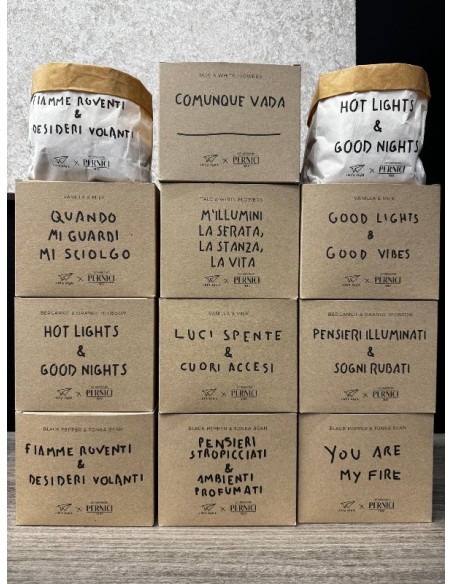 FIAMME ROVENTI
&
DESIDERI VOLANTI
PERNICI
TALC & WHITE FLOWERS
COMUNQUE VADA
X PERNICI
HOT LIGHTS
&
GOOD NIGHTS
X PERNICI
VANILLA & MILK
QUANDO
MI GUARDI
MI SCIOLGO
X PERNICI
TALC & WHITE FLOWERS
M'ILLUMINI
LA SERATA,
LA STANZA,
LA VITA
X PERNICI
VANILLA & MILK
GOOD LIGHTS
&
GOOD VIBES
X PERNICI
BERGAMOT & ORANGE BLOSSOM
HOT LIGHTS
&
GOOD NIGHTS
X PERNICI
VANILLA & MILK
LUCI SPENTE
&
CUORI ACCESI
X PERNICI
BERGAMOT & ORANGE BLOSSOM
PENSIERI ILLUMINATI
&
SOGNI RUBATI
X PERNICI
BLACK PEPPER & TONKA BEAN
FIAMME ROVENTI
&
DESIDERI VOLANTI
X PERNICI
BLACK PEPPER & TONKA BEAN
PENSIERI
STROPICCIATI
&
AMBIENTI
PROFUMATI
X PERNICI
BLACK PEPPER & TONKA BEAN
YOU ARE
MY FIRE
X PERNICI